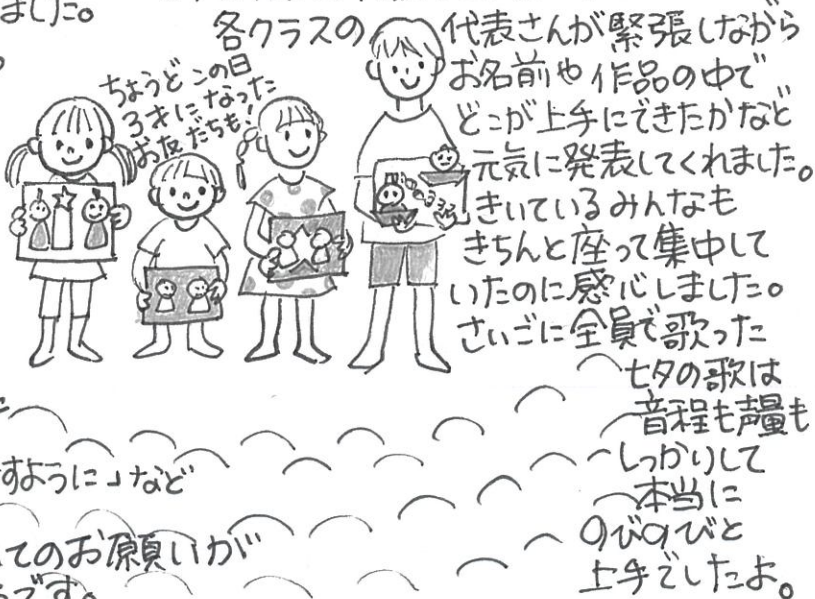 ました。
各クラスの代表さんが緊張しながら
お名前や作品の中で
どこが上手にできたかなど
元気に発表してくれました。
きいているみんなも
きちんと座って集中して
いたのに感心しました。
さいごに全員で歌った
七夕の歌は
音程も声量も
しっかりして
本当に
のびのびと
上手でしたよ。
ちょうどこの日
3才になった
お友だちも!
すように」など
てのお願いが
です。